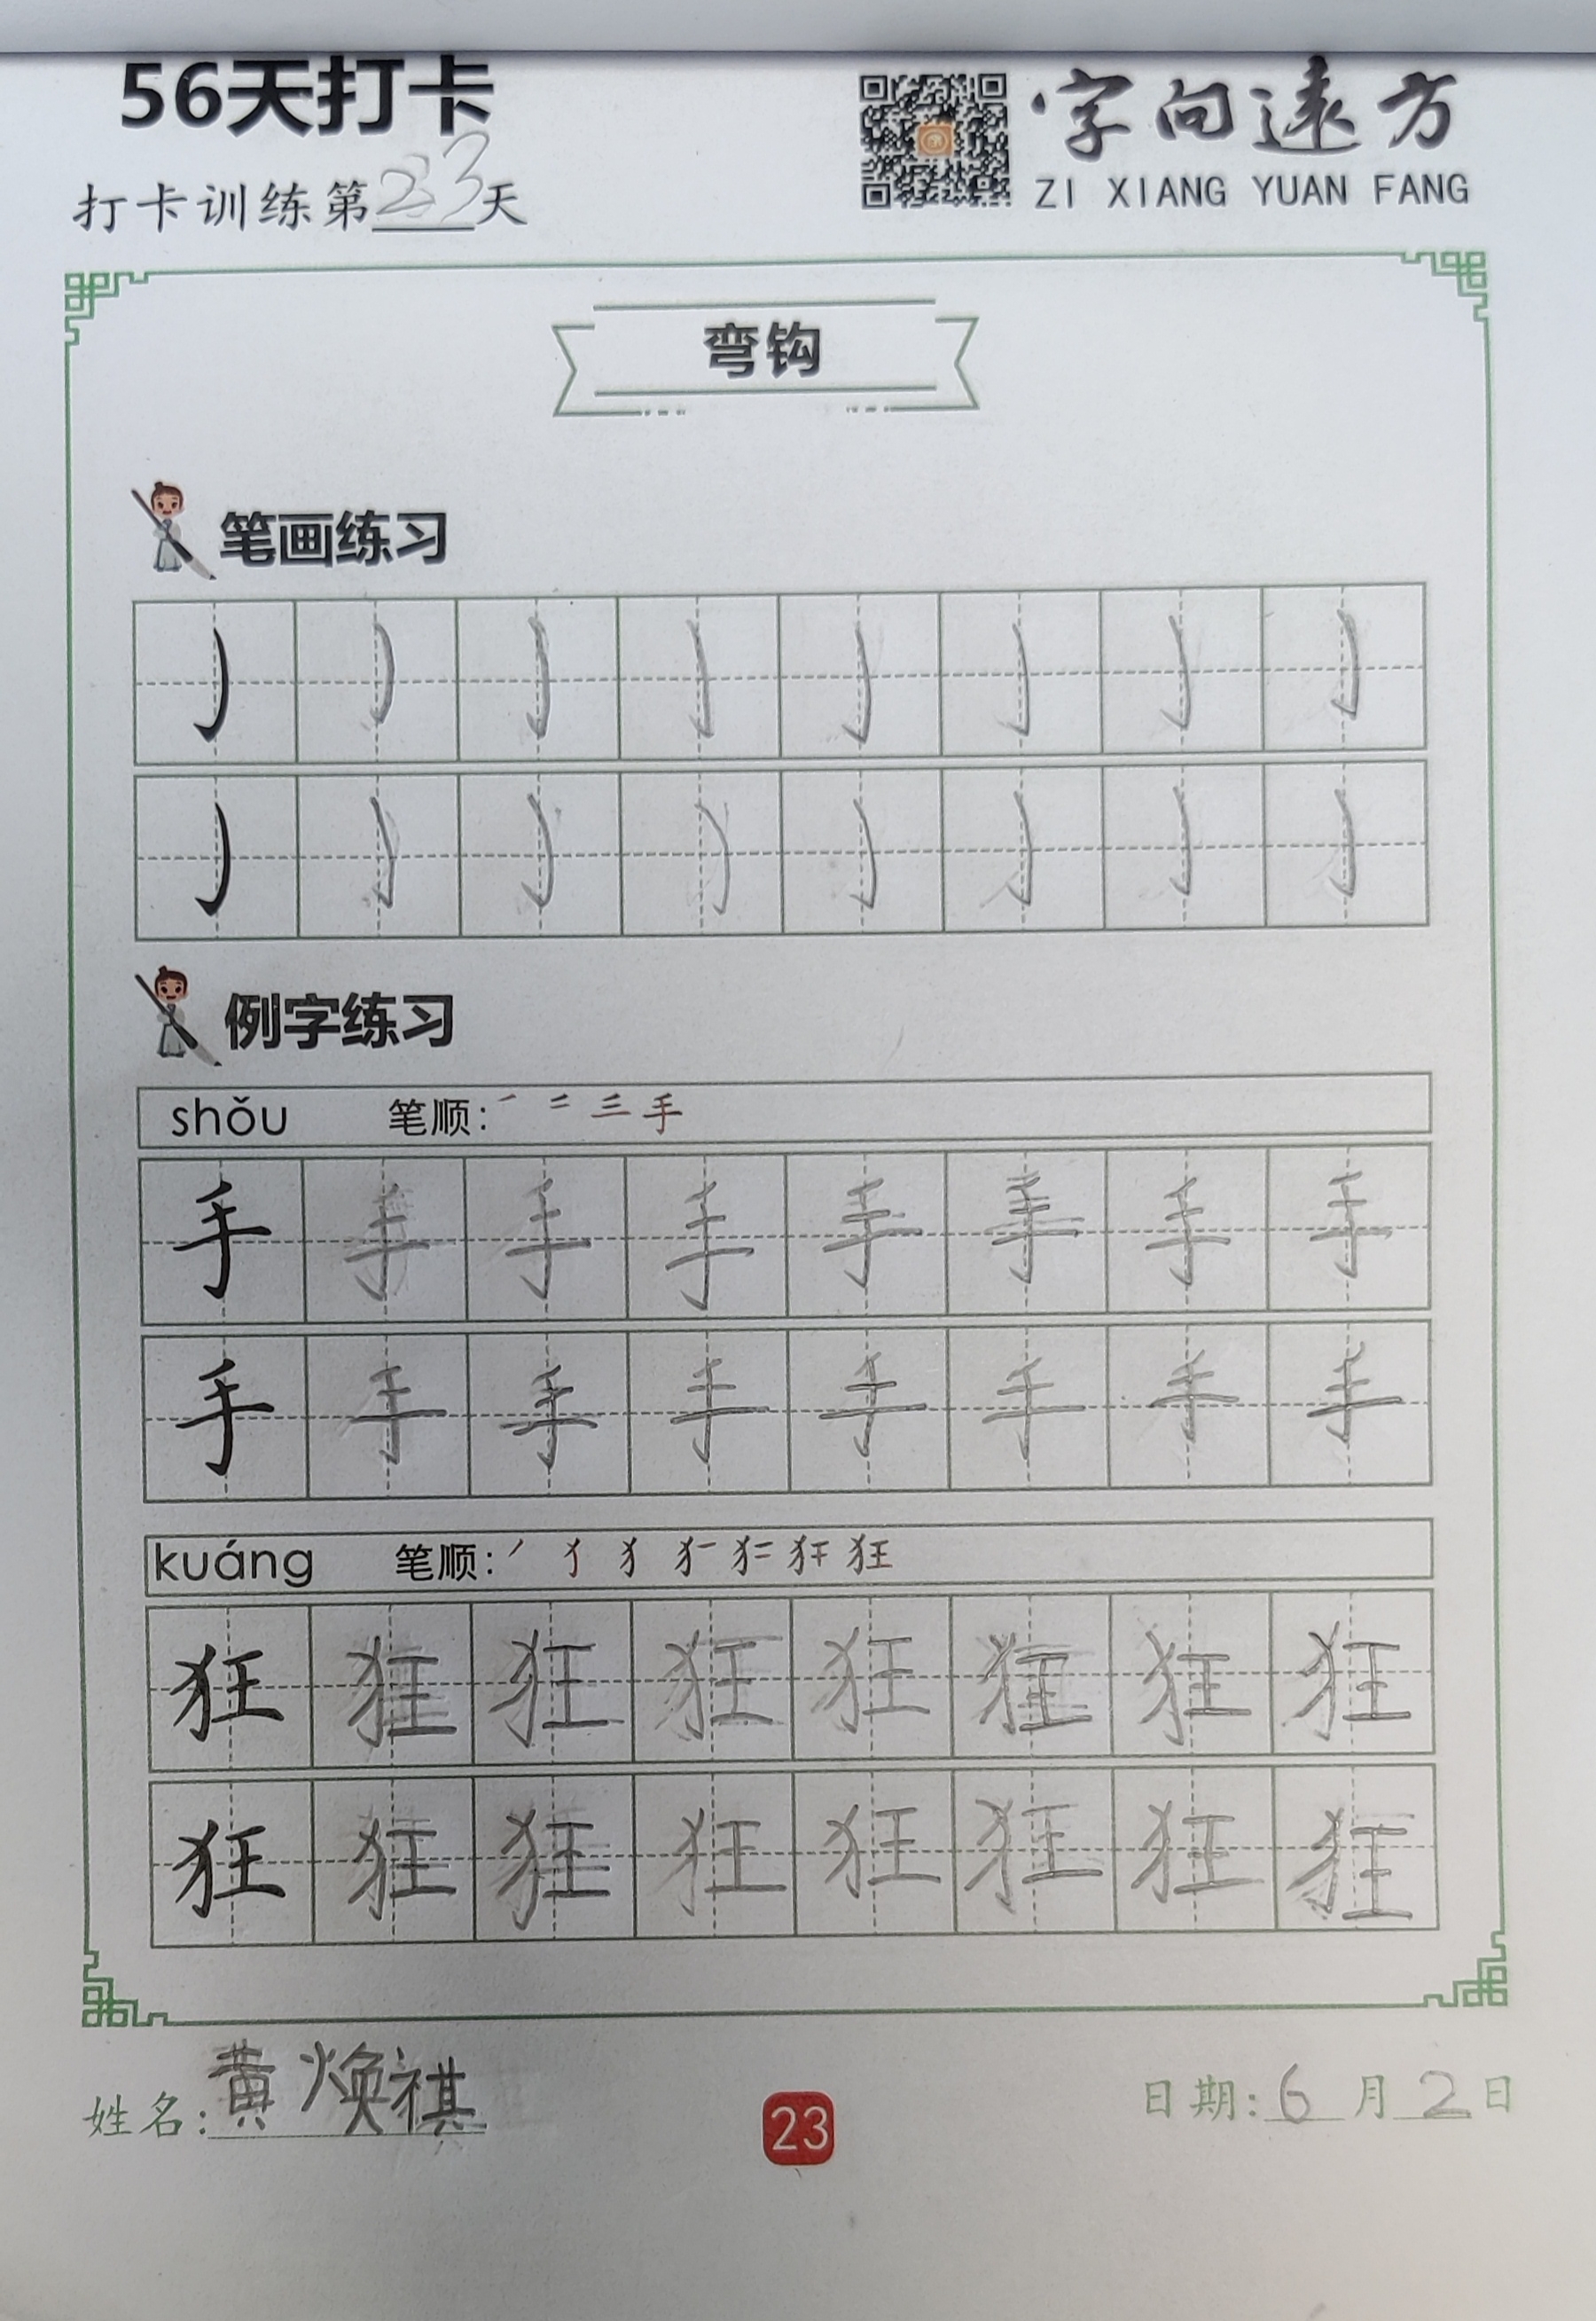 56天打卡
字向遠方
打卡训练第23天
ZI XIANG YUAN FANG
弯钩
笔画练习
例字练习
shǒu 笔顺: 手
手 手 手 手 手 手 手 手
手 手 手 手 手 手 手 手
kuáng 笔顺: 狂
狂 狂 狂 狂 狂 狂 狂 狂
狂 狂 狂 狂 狂 狂 狂 狂
姓名: 黄焕祺
23
日期: 6月2日